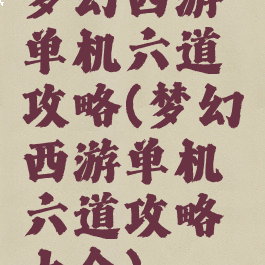 梦幻西游
单机六道
攻略(梦幻
西游单机
六道攻略
大全)